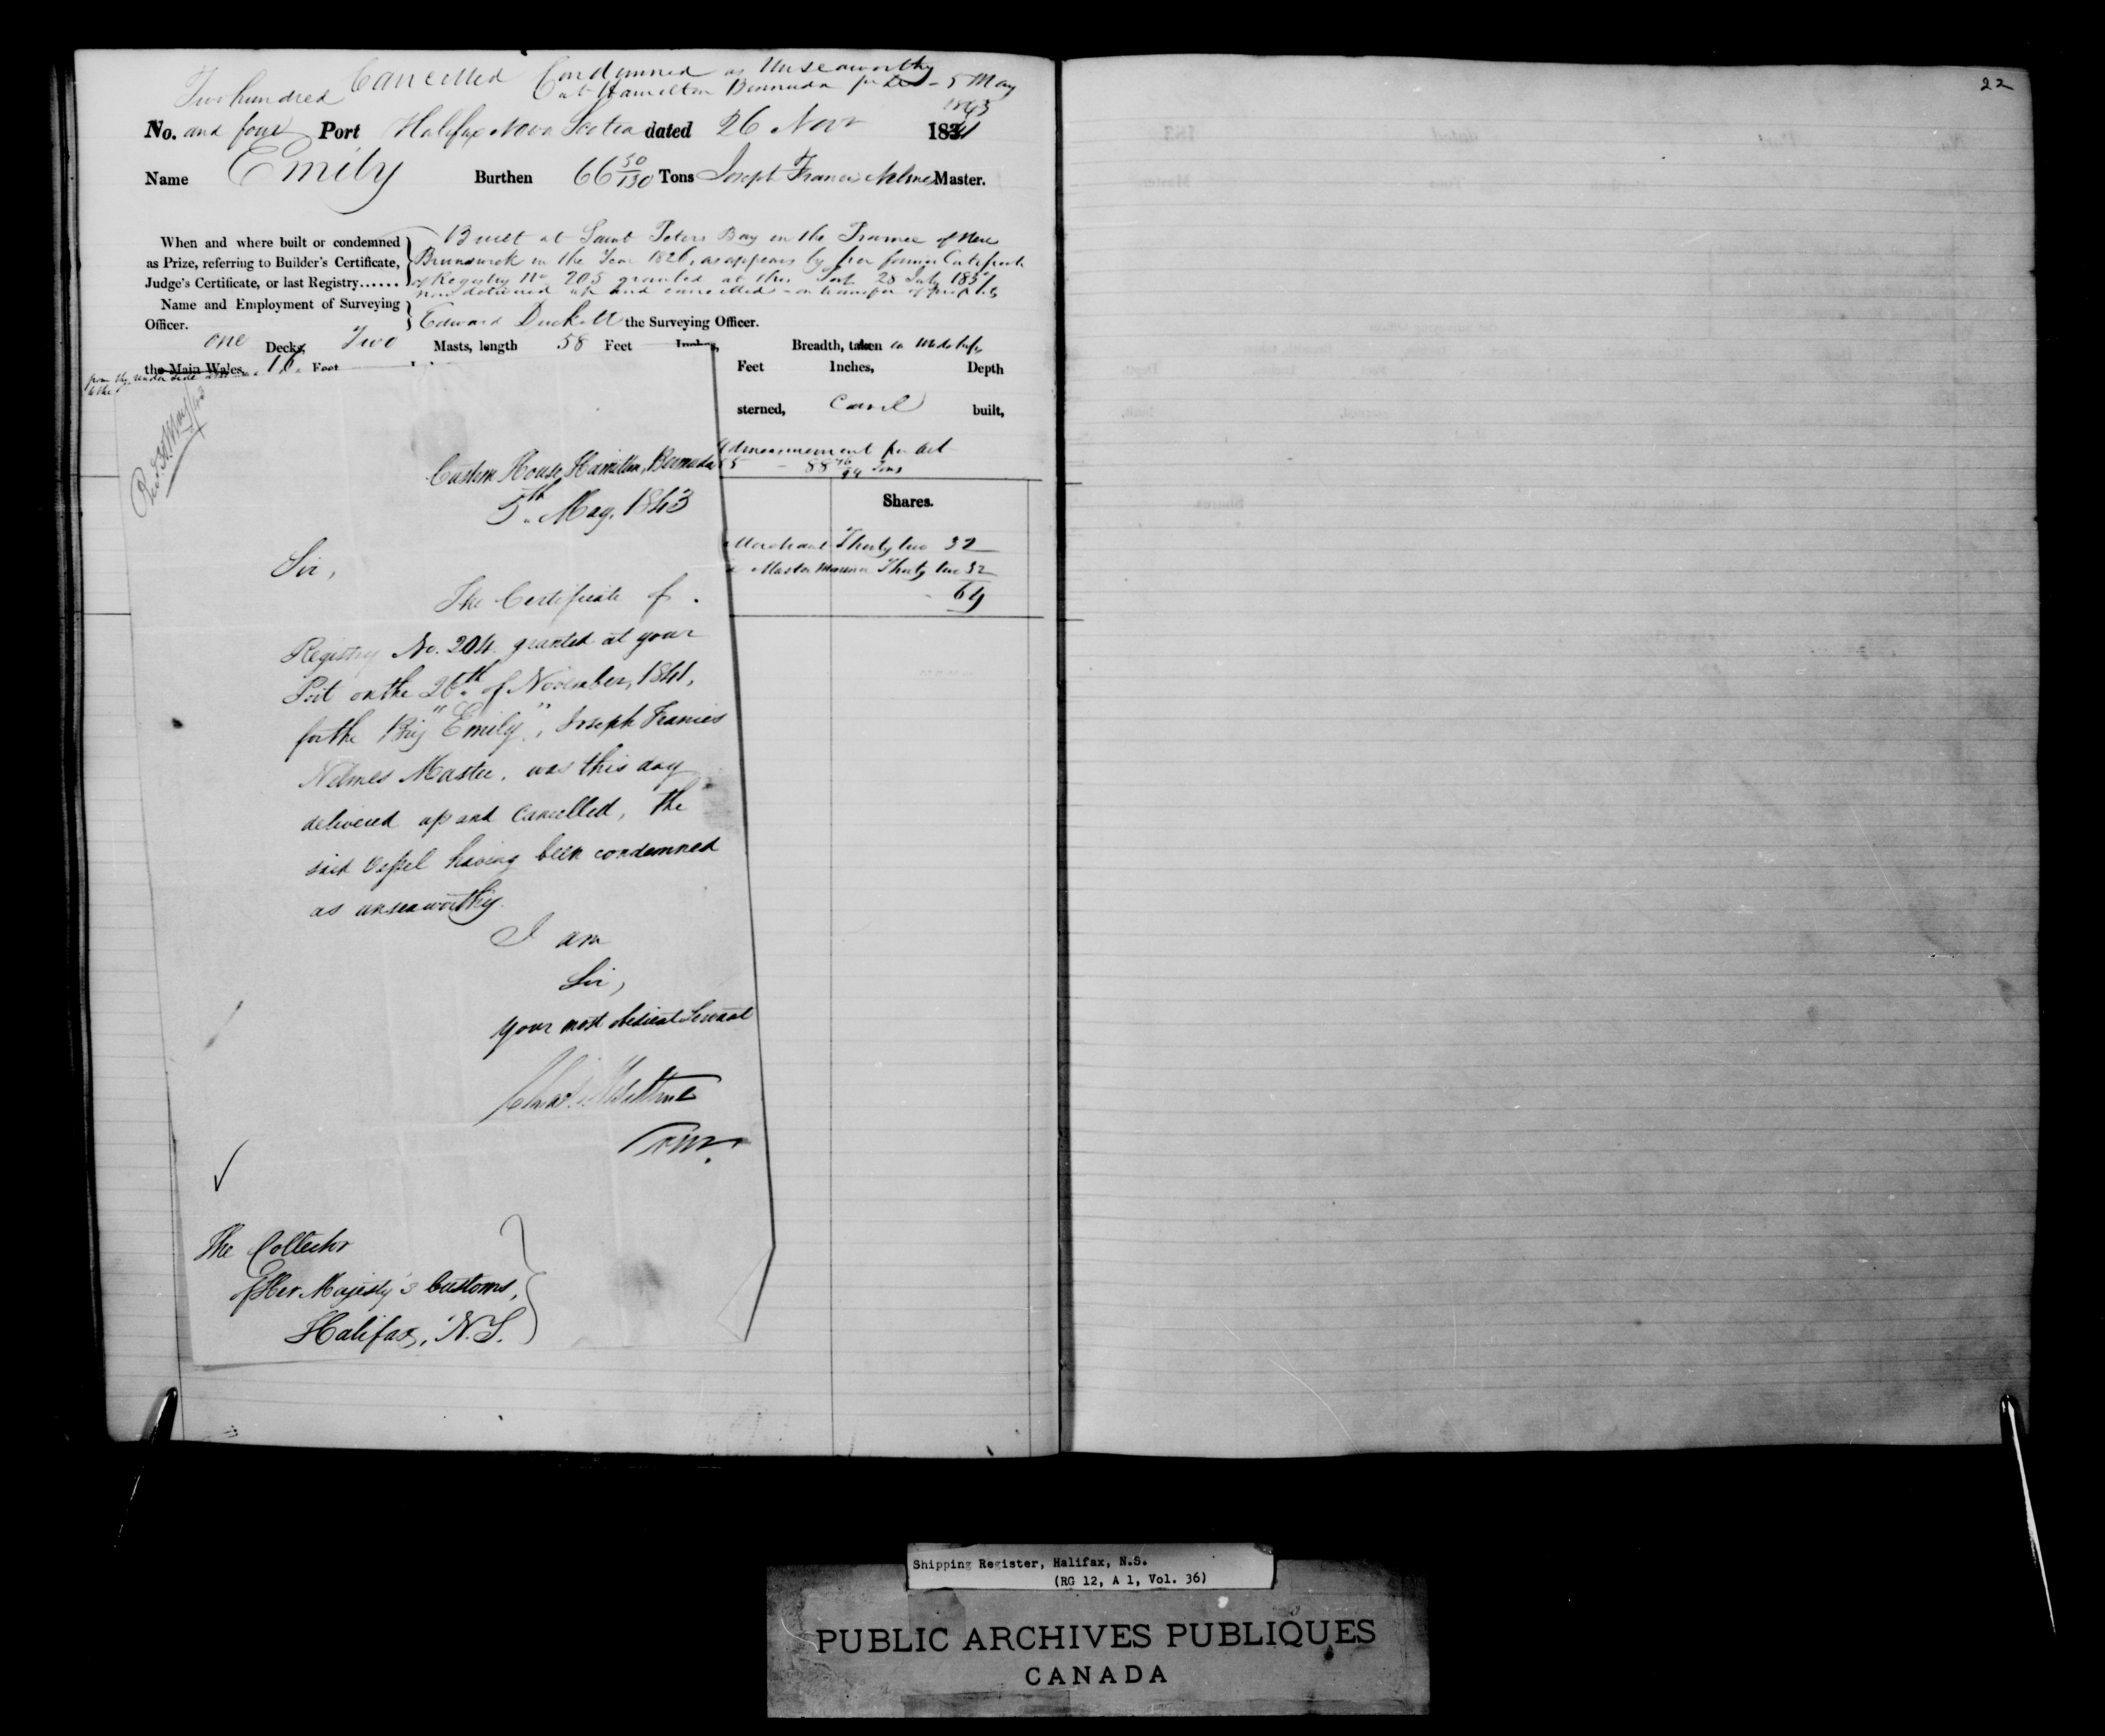 Cancelled Condemned as Unseaworthy
at Hamilton Bermuda 5 May
1843
Two hundred
No. and four Port Halifax Nova Scotia dated 26 Novr 1841
Name Emily Burthen 66 50/130 Tons Joseph Francis Nelmes Master.
When and where built or condemned
as Prize, referring to Builder's Certificate,
Judge's Certificate, or last Registry......
Built at Saint Peters Bay in the Province of New
Brunswick in the Year 1826, as appears by her former Certificate
of Registry No 205 granted at this Port 28 July 183
now delivered up and cancelled - on transfer of property
Name and Employment of Surveying
Officer.
Edward Duckett the Surveying Officer.
one Decks, Two Masts, length 58 Feet Inches, Breadth, taken in Midships
the Main Wales, 16 Feet
Feet Inches, Depth
from the under side
sterned, Carvel built,
Admeasurement per Act
88 Tons
Shares.
Merchant Thirty two 32
Master Mariner Thirty two 32
64
Recd. 30 May/43
Custom House, Hamilton, Bermuda
5th. May, 1843
Sir,
The Certificate of
Registry No. 204 granted at your
Port on the 26th. of November, 1841,
for the Brig "Emily", Joseph Francis
Nelmes Master, was this day
delivered up and cancelled, the
said Vessel having been condemned
as unseaworthy.
I am
Sir,
Your most obedient Servant
The Collector
of Her Majesty's Customs,
Halifax, N.S.
22
Shipping Register, Halifax, N.S.
(RG 12, A 1, Vol. 36)
PUBLIC ARCHIVES PUBLIQUES
CANADA